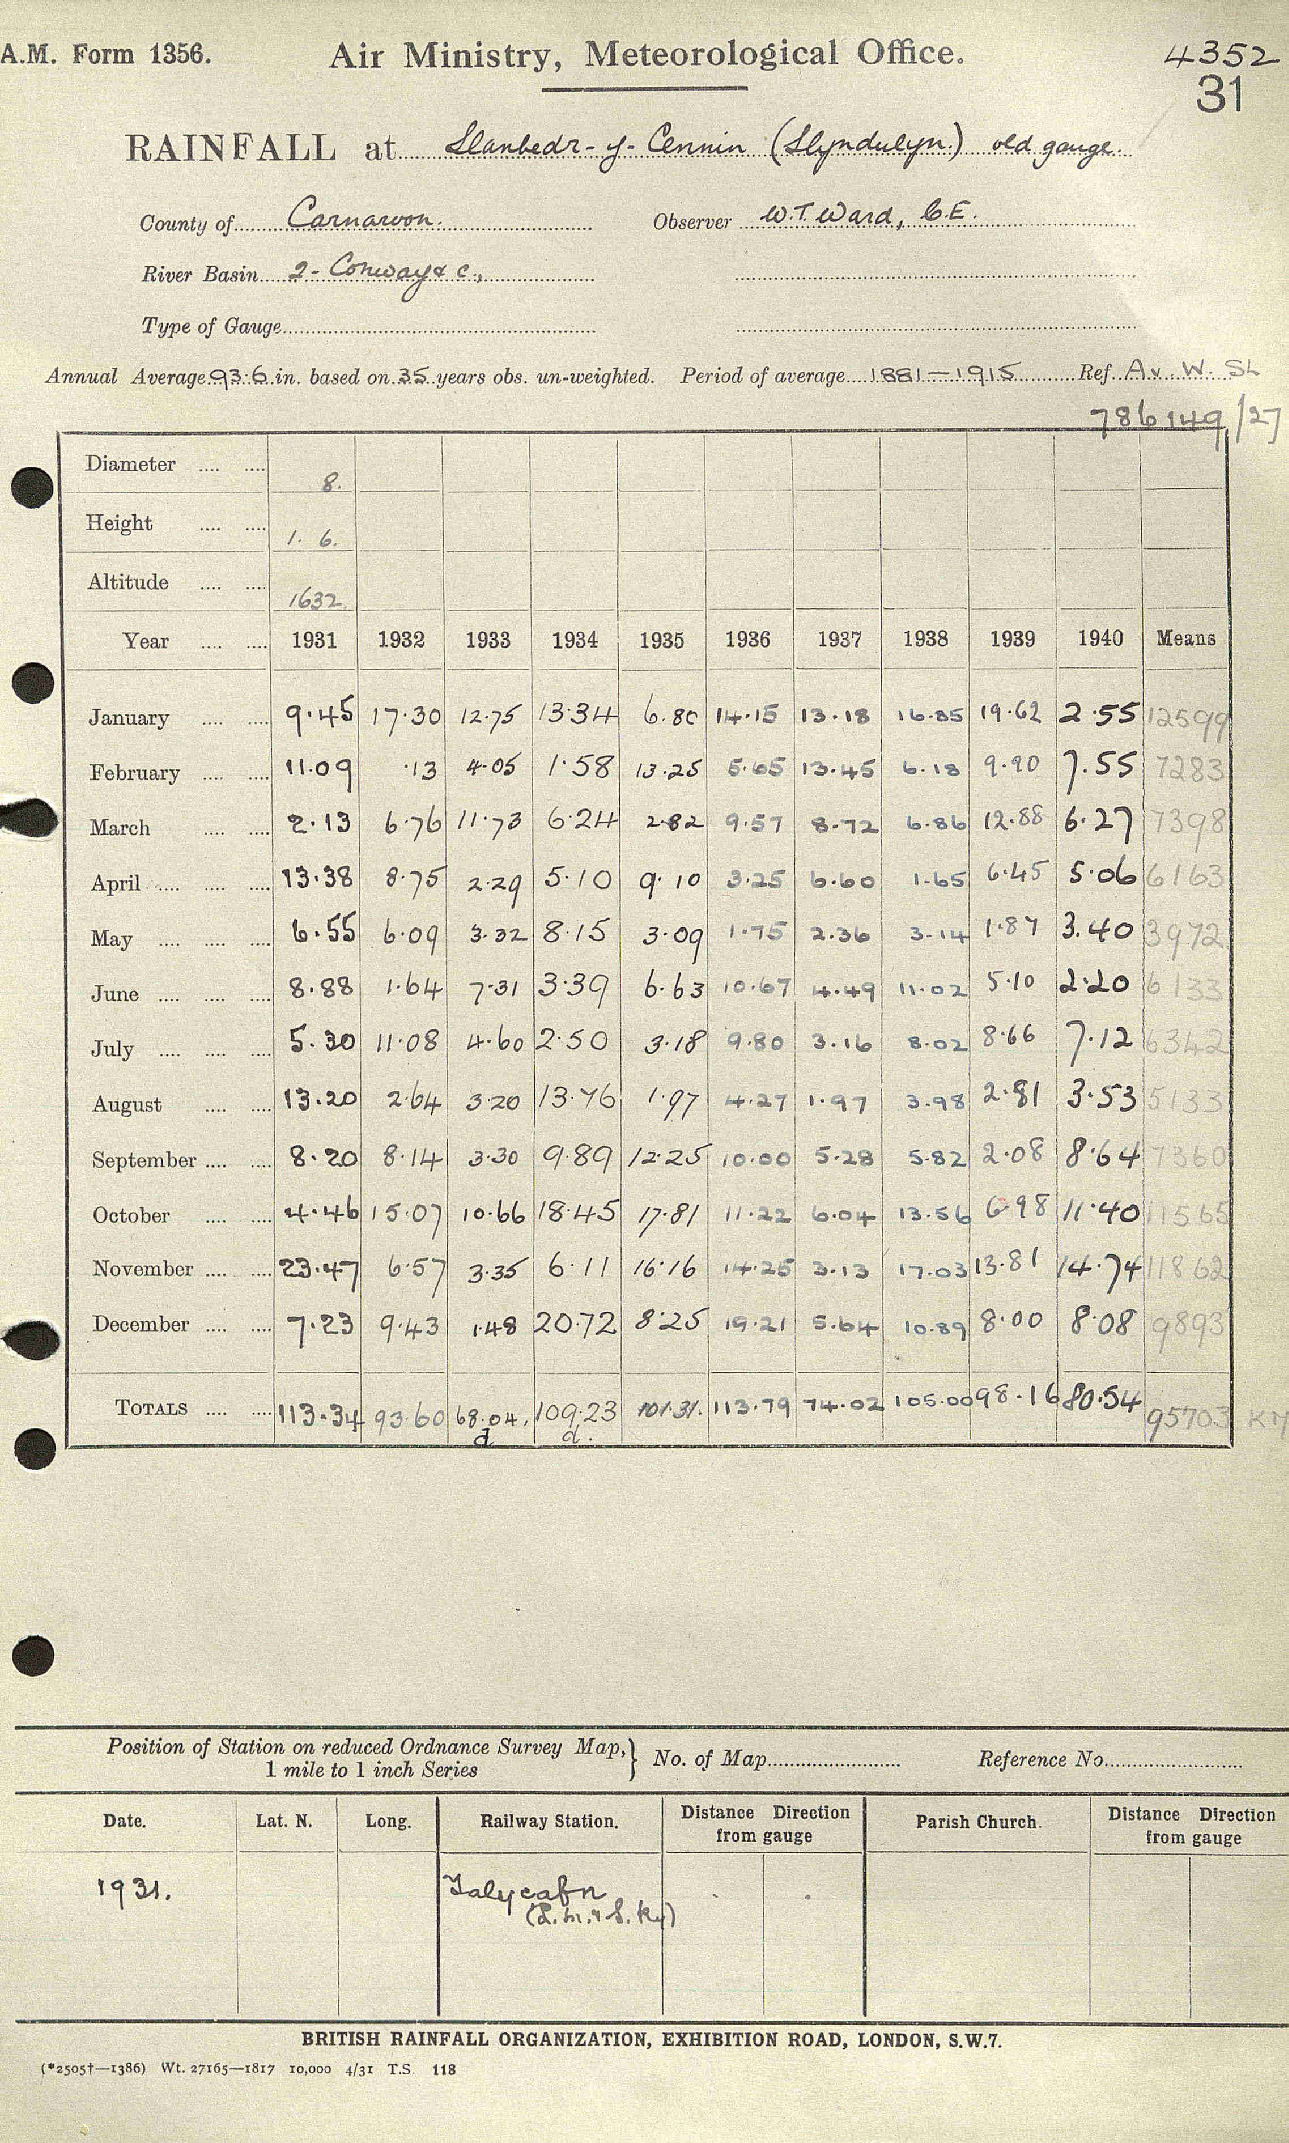 A.M. Form 1356. Air Ministry, Meteorological Office. 4352
31
RAINFALL at Llanbedr-y-Cennin (Llyndulyn) old gauge.
County of Carnarvon. Observer W.T. Ward, C.E.
River Basin 2- Conway & c.,
Type of Gauge
Annual Average 93.6 in. based on 35 years obs. un-weighted. Period of average 1881-1915 Ref. Av. W. SL
786149/27
Diameter 8.
Height 1. 6.
Altitude 1632.
Year 1931 1932 1933 1934 1935 1936 1937 1938 1939 1940 Means
January 9.45 17.30 12.75 13.34 6.80 14.15 13.18 16.85 19.62 2.55 12599
February 11.09 .13 4.05 1.58 13.25 5.65 13.45 6.18 9.90 7.55 7283
March 2.13 6.76 11.73 6.24 2.82 9.57 8.72 6.86 12.88 6.27 7398
April 13.38 8.75 2.29 5.10 9.10 3.25 6.60 1.65 6.45 5.06 6163
May 6.55 6.09 3.32 8.15 3.09 1.75 2.36 3.14 1.87 3.40 3972
June 8.88 1.64 7.31 3.39 6.63 10.67 4.49 11.02 5.10 2.20 6133
July 5.30 11.08 4.60 2.50 3.18 9.80 3.16 8.02 8.66 7.12 6342
August 13.20 2.64 3.20 13.76 1.97 4.27 1.97 3.98 2.81 3.53 5133
September 8.20 8.14 3.30 9.89 12.25 10.00 5.28 5.82 2.08 8.64 7360
October 4.46 15.07 10.66 18.45 17.81 11.22 6.04 13.56 6.98 11.40 11565
November 23.47 6.57 3.35 6.11 16.16 14.25 3.13 17.03 13.81 14.74 11862
December 7.23 9.43 1.48 20.72 8.25 19.21 5.64 10.89 8.00 8.08 9893
TOTALS 113.34 93.60 68.04. 109.23 101.31. 113.79 74.02 105.00 98.16 80.54 95703
d d.
Position of Station on reduced Ordnance Survey Map, } No. of Map Reference No.
1 mile to 1 inch Series
Date. Lat. N. Long. Railway Station. Distance Direction from gauge Parish Church. Distance Direction from gauge
1931. Talycafn
(L.M. & S. Ry)
BRITISH RAINFALL ORGANIZATION, EXHIBITION ROAD, LONDON, S.W.7.
(*2505†—1386) Wt. 27165—1817 10,000 4/31 T.S. 118